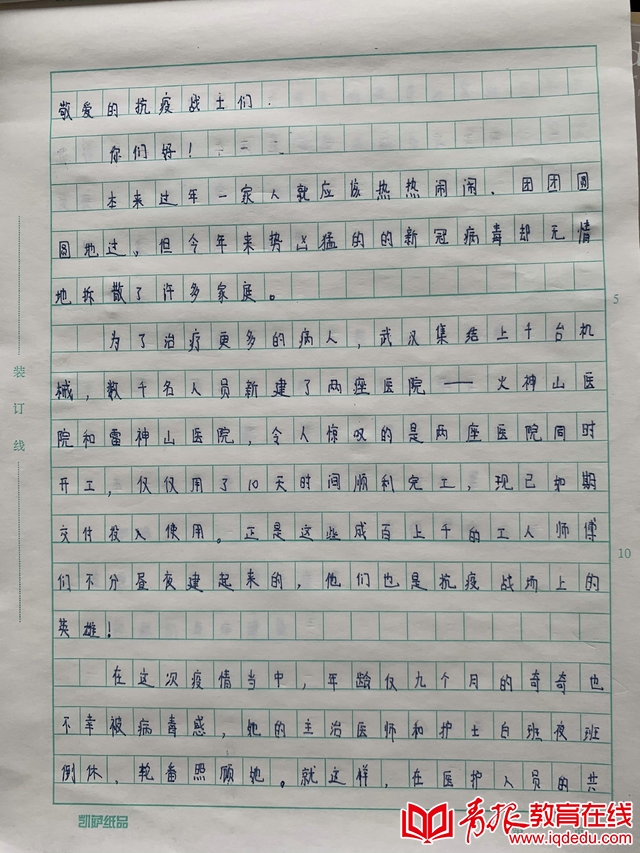 敬爱的抗疫战士们.
你们好!
本来过年一家人就应该热热闹闹、团团圆
圆地过,但今年来势凶猛的的新冠病毒却无情
地拆散了许多家庭。
为了治疗更多的病人,武汉集结上千台机
械,数千名人员新建了两座医院——火神山医
院和雷神山医院,令人惊叹的是两座医院同时
开工,仅仅用了10天时间顺利完工,现已如期
交付投入使用。正是这些成百上千的工人师傅
们不分昼夜建起来的,他们也是抗疫战场上的
英雄!
在这次疫情当中,年龄仅九个月的奇奇也
不幸被病毒感,她的主治医师和护士白班夜班
倒休,轮番照顾她。就这样,在医护人员的共
装订线
5
10
凯萨纸品
青报教育在线
www.iqdedu.com